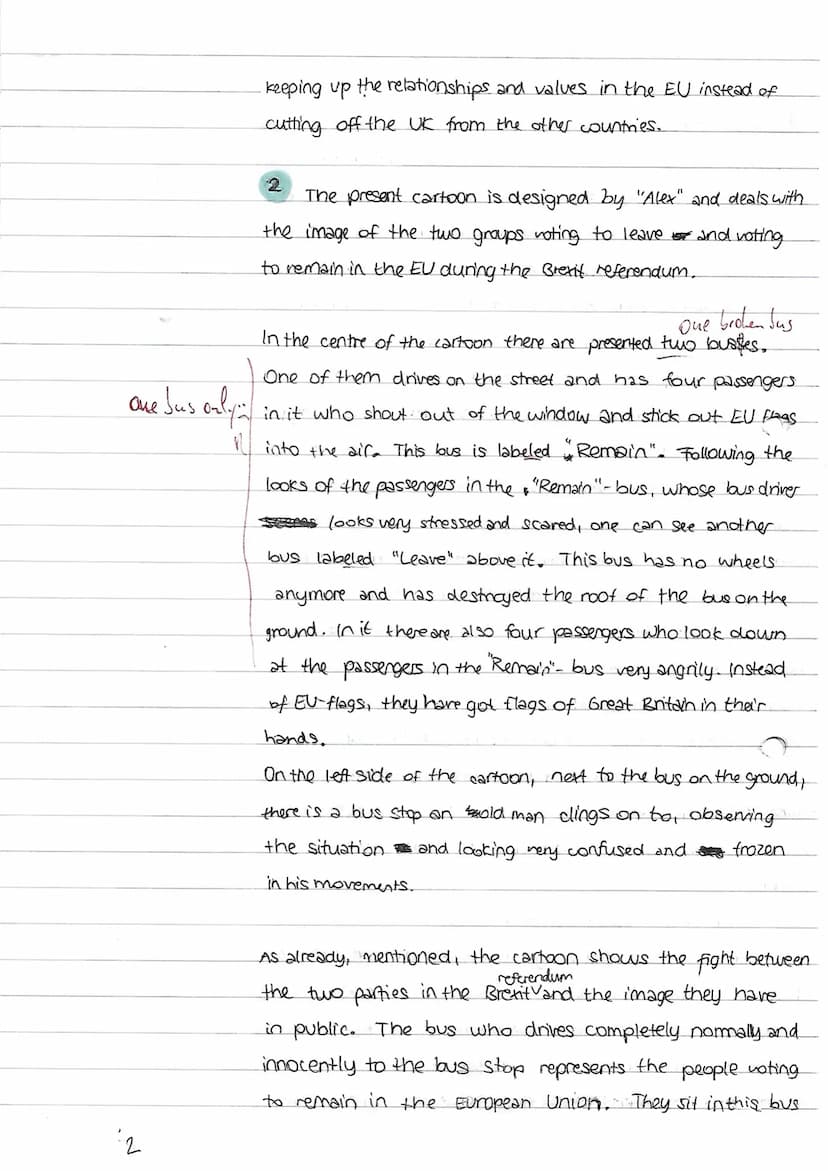 keeping up the relationships and values in the EU instead of
cutting off the UK from the other countries.
2 The present cartoon is designed by "Alex" and deals with
the image of the two groups voting to leave and voting
to remain in the EU during the Brexit referendum.
one broken bus
In the centre of the cartoon there are presented two busses.
One of them drives on the street and has four passengers
one bus only
in it who shout out of the window and stick out EU flags
into the air. This bus is labeled "Remain". Following the
looks of the passengers in the "Remain"-bus, whose bus driver
looks very stressed and scared, one can see another
bus labeled "Leave" above it. This bus has no wheels
anymore and has destroyed the roof of the bus on the
ground. In it there are also four passengers who look down
at the passengers in the "Remain"-bus very angrily. Instead
of EU-flags, they have got flags of Great Britain in their
hands.
On the left side of the cartoon, next to the bus on the ground,
there is a bus stop an old man clings on to, observing
the situation and looking very confused and frozen
in his movements.
As already, mentioned, the cartoon shows the fight between
referendum
the two parties in the Brexit and the image they have
in public. The bus who drives completely normally and
innocently to the bus stop represents the people voting
to remain in the European Union. They sit in this bus
2